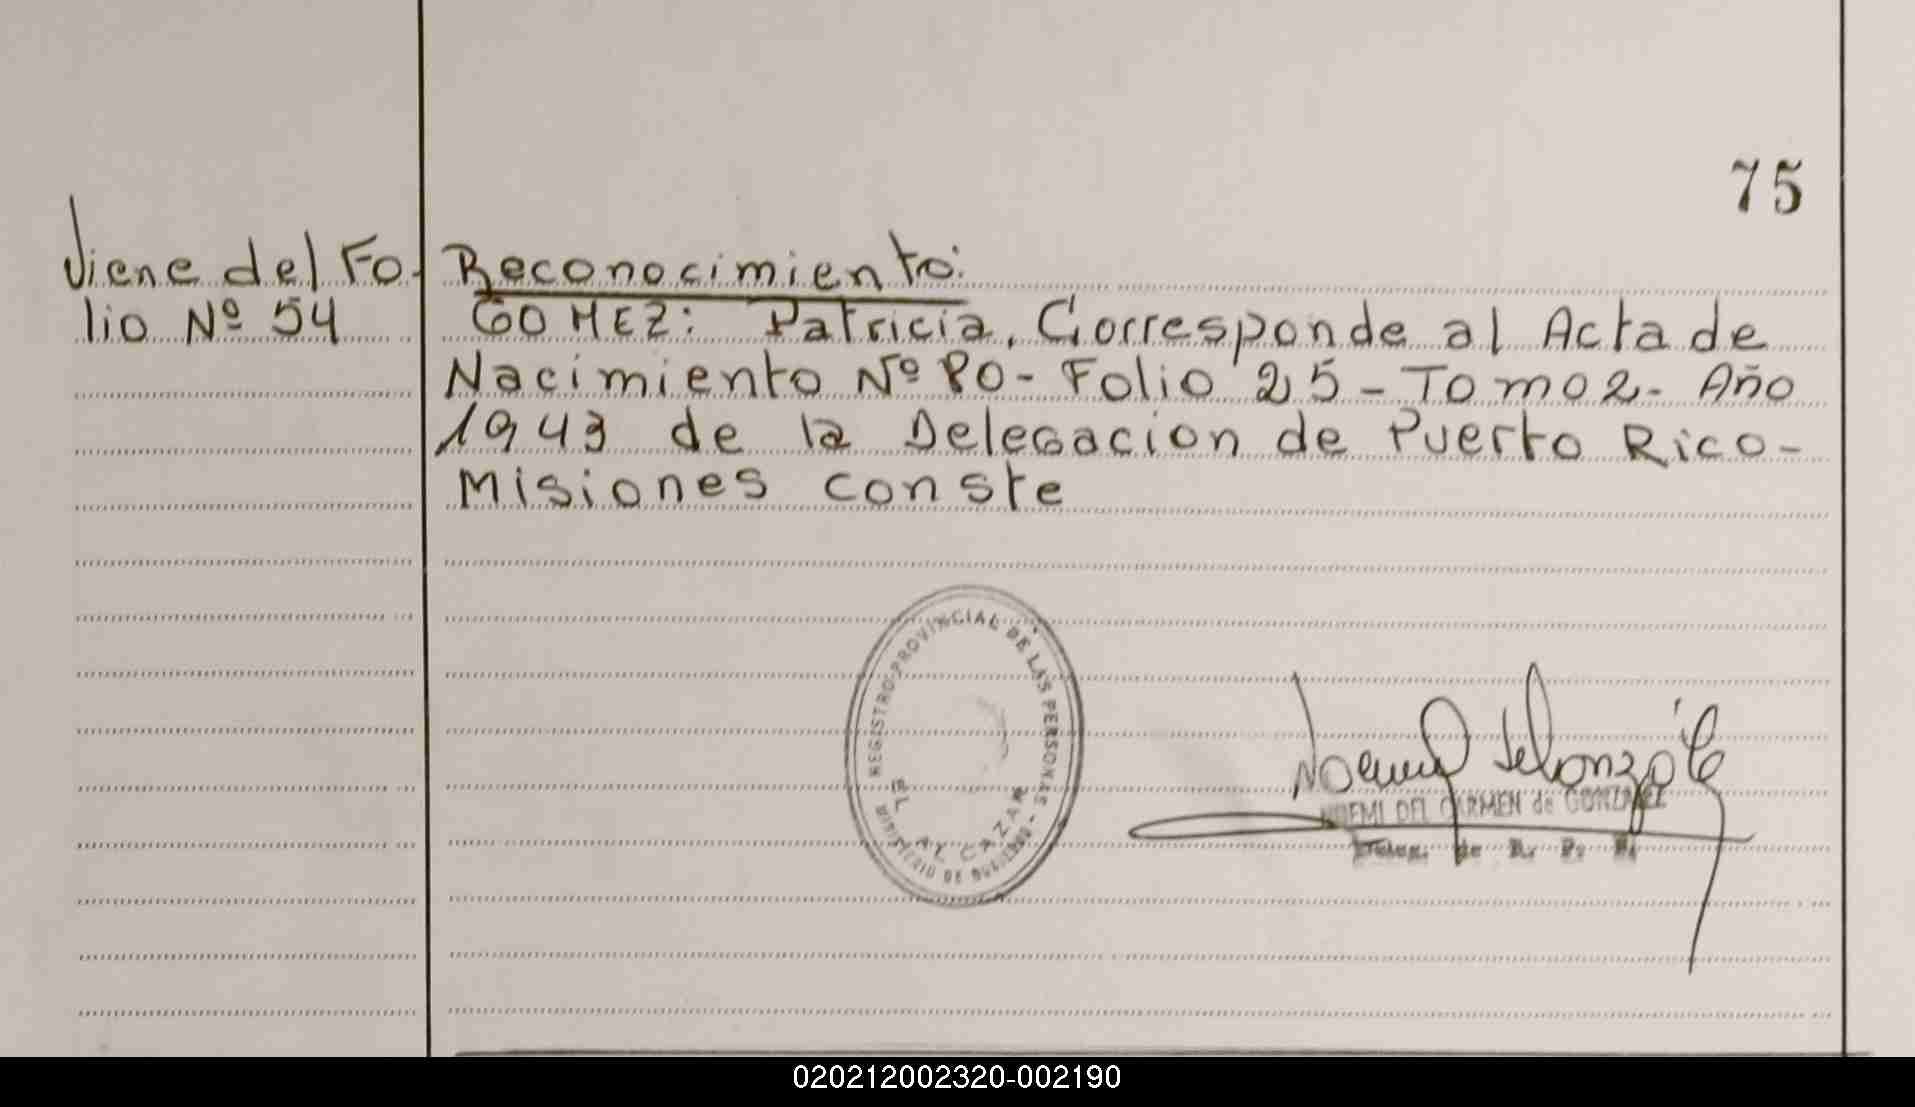 75
Viene del Fo-
lio Nº 54
Reconocimiento:
GOMEZ: Patricia, Corresponde al Acta de
Nacimiento Nº 80 - Folio 25 - Tomo 2 - Año
1943 de la Delegacion de Puerto Rico -
Misiones conste
REGISTRO PROVINCIAL DE LAS PERSONAS -
MINISTERIO DE GOBIERNO -
EL ALCAZAR
NOEMI DEL CARMEN de GONZALEZ
Deleg. de R. P. P.
020212002320-002190